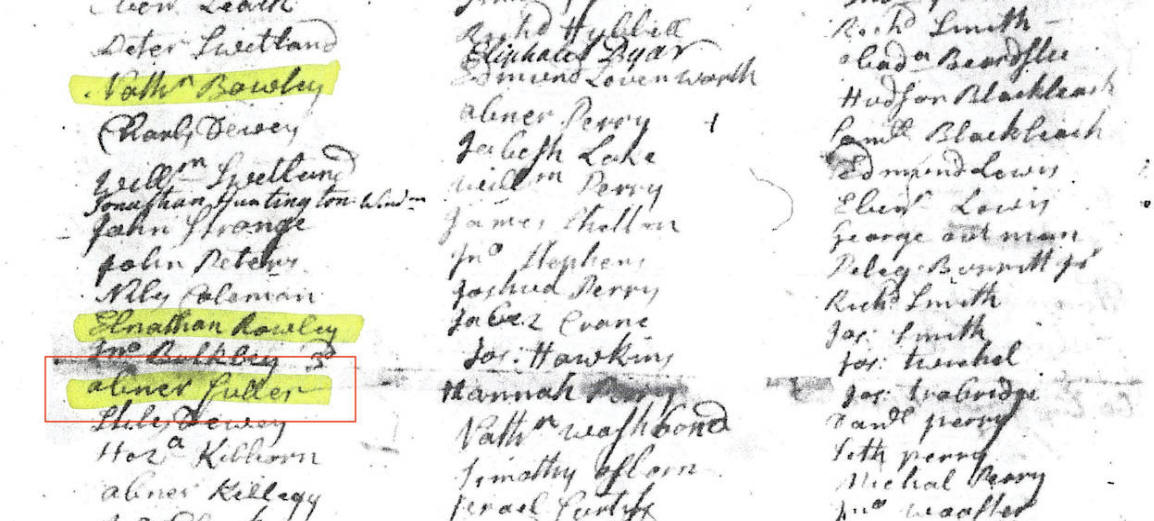 Peter Swetland
Nathn Bowley
Charls Dewey
Willm Swetland
Jonathan Huntington Windm
John Strange
John Peters
Nily Coleman
Elnathan Rowley
Jno Bulkley 3d
abner Fuller
Dewey
Heza Kilborn
abner Kellegg
Richd Hubbell
Eliphalet
Edmund Lovenworth
abner Perry
Jabesh Lake
willm Perry
James Shelton
Jno Stephens
Joshua Perry
Jabez Crane
Jos: Hawkins
Hannah Perry
Nathn washbond
Timothy osborn
Jsrael Curtys
Richd Smith
obada Beardslee
Hudson Blackleach
Samll Blackleach
Edmund Lewis
Ebenr Lewis
George oatman
Peleg Burritt Jr
Richd Smith
Jos: Smith
Jos:
Jos: trobridge
Danll perry
Seth perry
Michal Perry
Jno